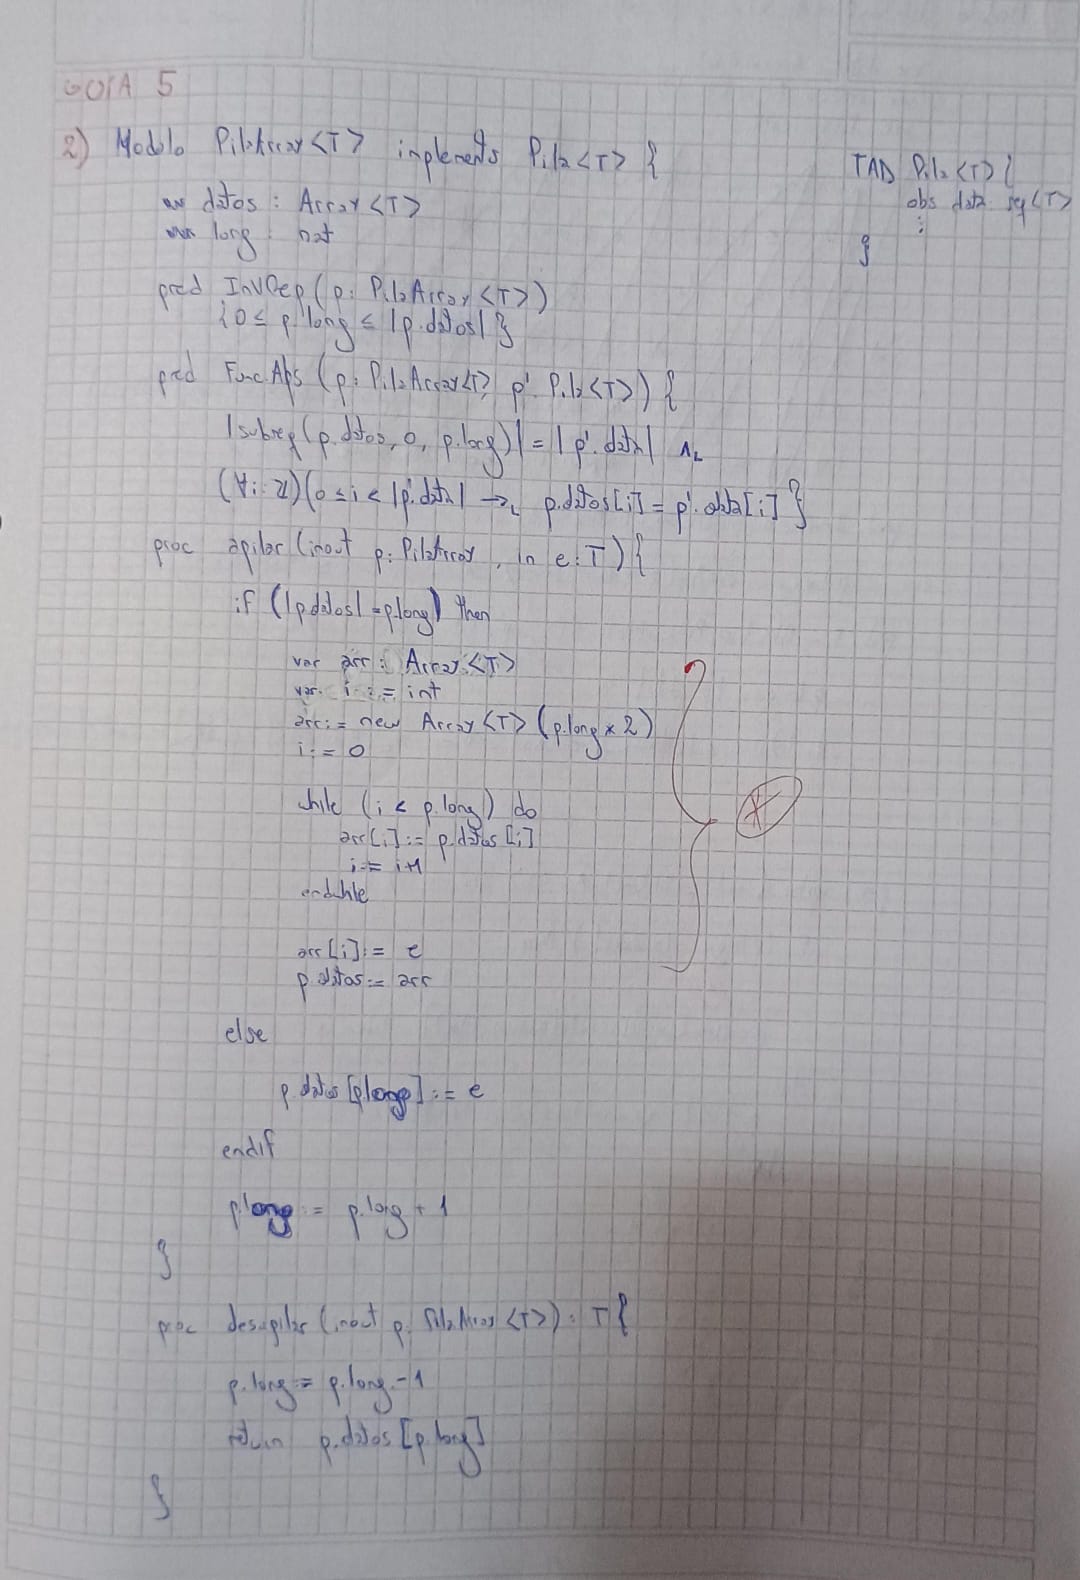 GUIA 5
2) Modulo PilaArray<T> implements Pila<T> {
var datos : Array<T>
var long : nat
TAD Pila<T> {
obs data: seq<T>
⋮
}
pred InvRep(p: PilaArray<T>)
{0 ≤ p.long ≤ |p.datos| }
pred FuncAbs (p: PilaArray<T>, p': Pila<T>) {
|subseq(p.datos, 0, p.long)| = |p'.data| ∧L
(∀i: ℤ)(0 ≤ i < |p'.data| →L p.datos[i] = p'.data[i] }
proc apilar (inout p: PilaArray, in e: T) {
if (|p.datos| = p.long) then
var arr : Array<T>
var i := int
arr := new Array<T> (p.long x 2)
i := 0
while (i < p.long) do
arr[i] := p.datos [i]
i := i+1
endwhile
arr[i] := e
p.datos := arr
else
p.datos [p.long] := e
endif
p.long := p.long + 1
}
proc desapilar (inout p: PilaArray <T>) : T {
p.long := p.long - 1
return p.datos [p.long]
}